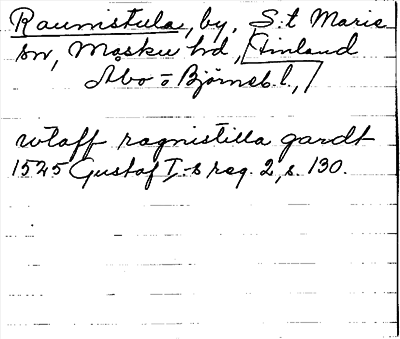 Raunistula, by, S:t Marie
sn, Masku hd, Finland
Åbo o Björneb. l.,
wtaff ragnistilla gardt
1525 Gustaf I:s reg. 2, s. 130.